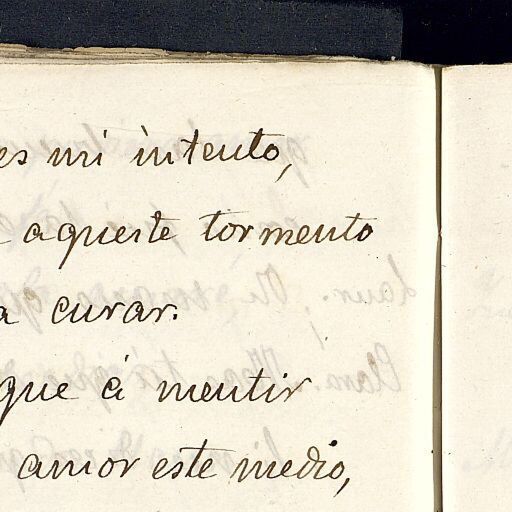 es mi intento,
aqueste tormento
a curar.
que á mentir
amor este medio,